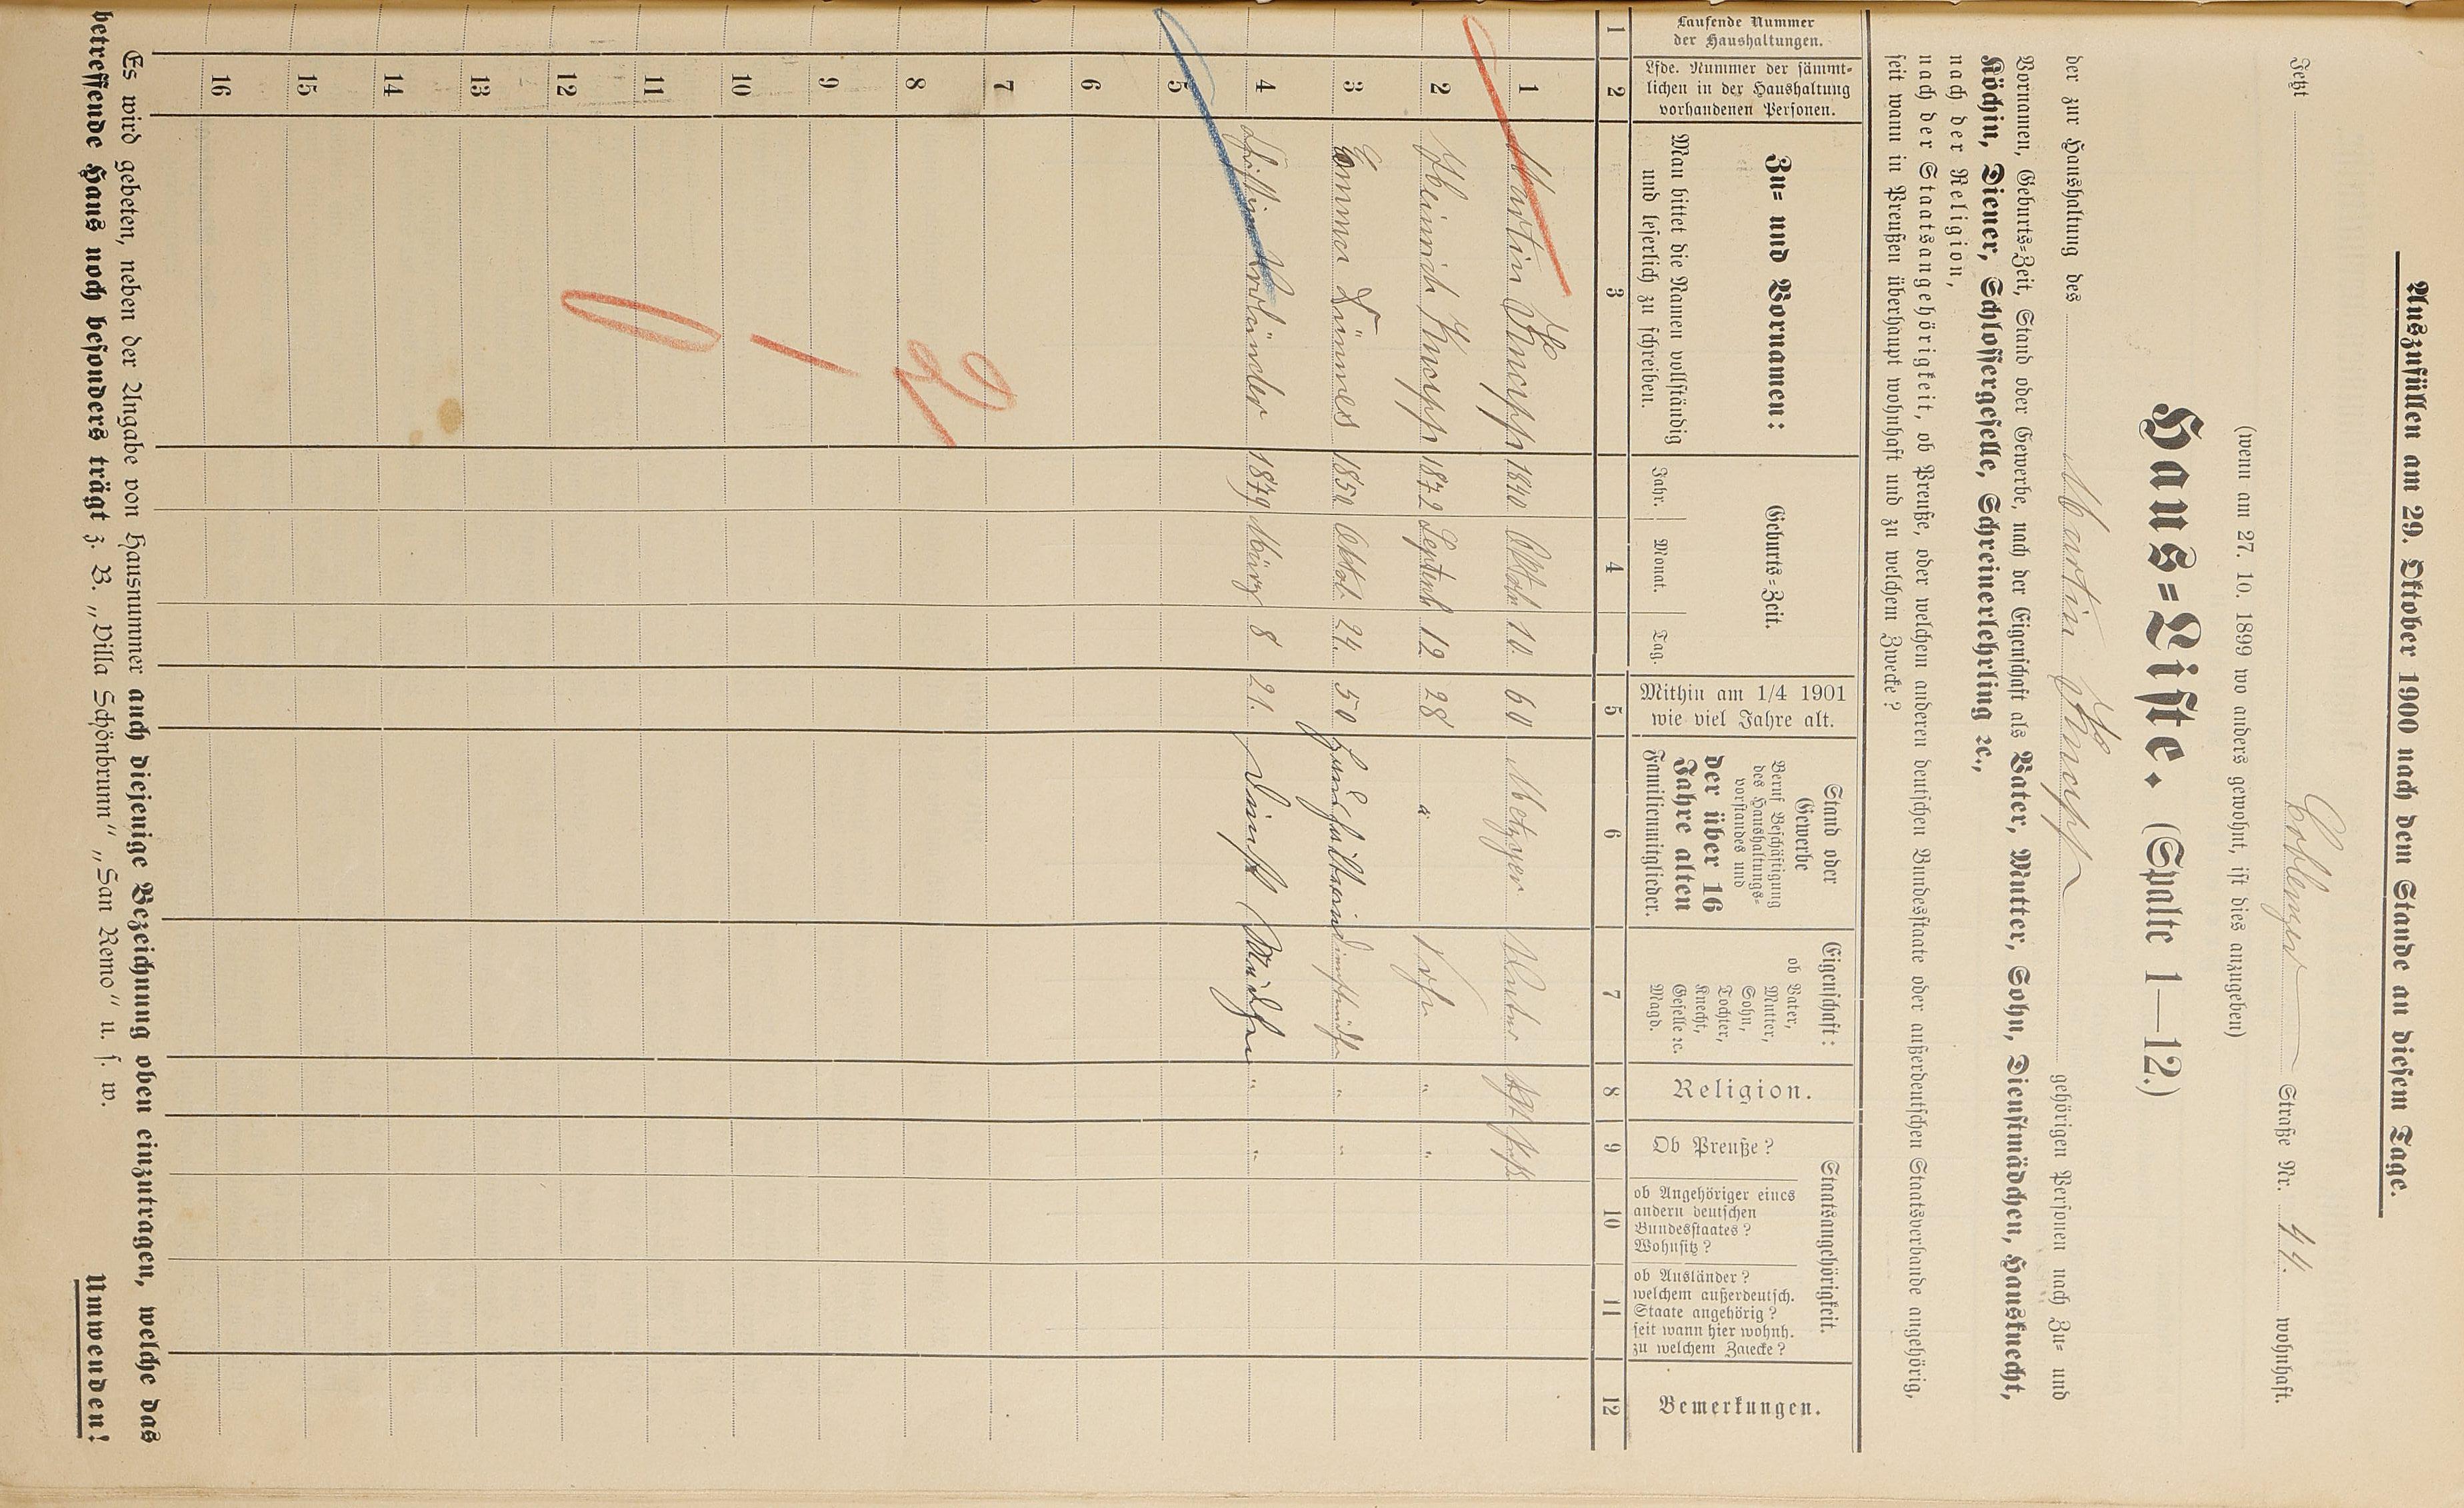 Auszufüllen am 29. Oktober 1900 nach dem Stande an diesem Tage.
Jetzt Coblenzer Straße Nr. 44. wohnhaft.
(wenn am 27. 10. 1899 wo anders gewohnt, ist dies anzugeben)
Haus=Liste. (Spalte 1—12.)
der zur Haushaltung des Martin Knapp gehörigen Personen nach Zu= und
Vornamen, Geburts=Zeit, Stand oder Gewerbe, nach der Eigenschaft als Vater, Mutter, Sohn, Dienstmädchen, Hausknecht,
Köchin, Diener, Schlossergeselle, Schreinerlehrling ꝛc.,
nach der Religion,
nach der Staatsangehörigkeit, ob Preuße, oder welchem anderen deutschen Bundesstaate oder außerdeutschen Staatsverbande angehörig,
seit wann in Preußen überhaupt wohnhaft und zu welchem Zwecke?
Laufende Nummer
der Haushaltungen.
Lfde. Nummer der sämmt=
lichen in der Haushaltung
vorhandenen Personen.
Zu= und Vornamen:
Man bittet die Namen vollständig
und leserlich zu schreiben.
Geburts=Zeit.
Jahr. Monat. Tag.
Mithin am 1/4 1901
wie viel Jahre alt.
Stand oder
Gewerbe
Beruf Beschäftigung
des Haushaltungs=
vorstandes und
der über 16
Jahre alten
Familienmitglieder.
Eigenschaft:
ob Vater,
Mutter,
Sohn,
Tochter,
Knecht,
Geselle ꝛc.
Magd.
Religion.
Staatsangehörigkeit.
Ob Preuße?
ob Angehöriger eines
andern deutschen
Bundesstaates?
Wohnsitz?
ob Ausländer?
welchem außerdeutsch.
Staate angehörig?
seit wann hier wohnh.
zu welchem Zwecke?
Bemerkungen.
1 2 3 4 5 6 7 8 9 10 11 12
1 Martin Knapp 1840 Oktob. 10. 60 Metzger Vater
2 Heinrich Knapp 1872 Septemb. 12. 28 " Sohn " "
3 Emma 1850 Oktob. 24. 50 " "
4 1879 März 8 21. Dienst Mädchen " "
5
6
7
8
9
10
11
12
13
14
15
16
Es wird gebeten, neben der Angabe von Hausnummer auch diejenige Bezeichnung oben einzutragen, welche das
betreffende Haus noch besonders trägt z. B. „Villa Schönbrunn" „San Remo" u. s. w.
Umwenden!